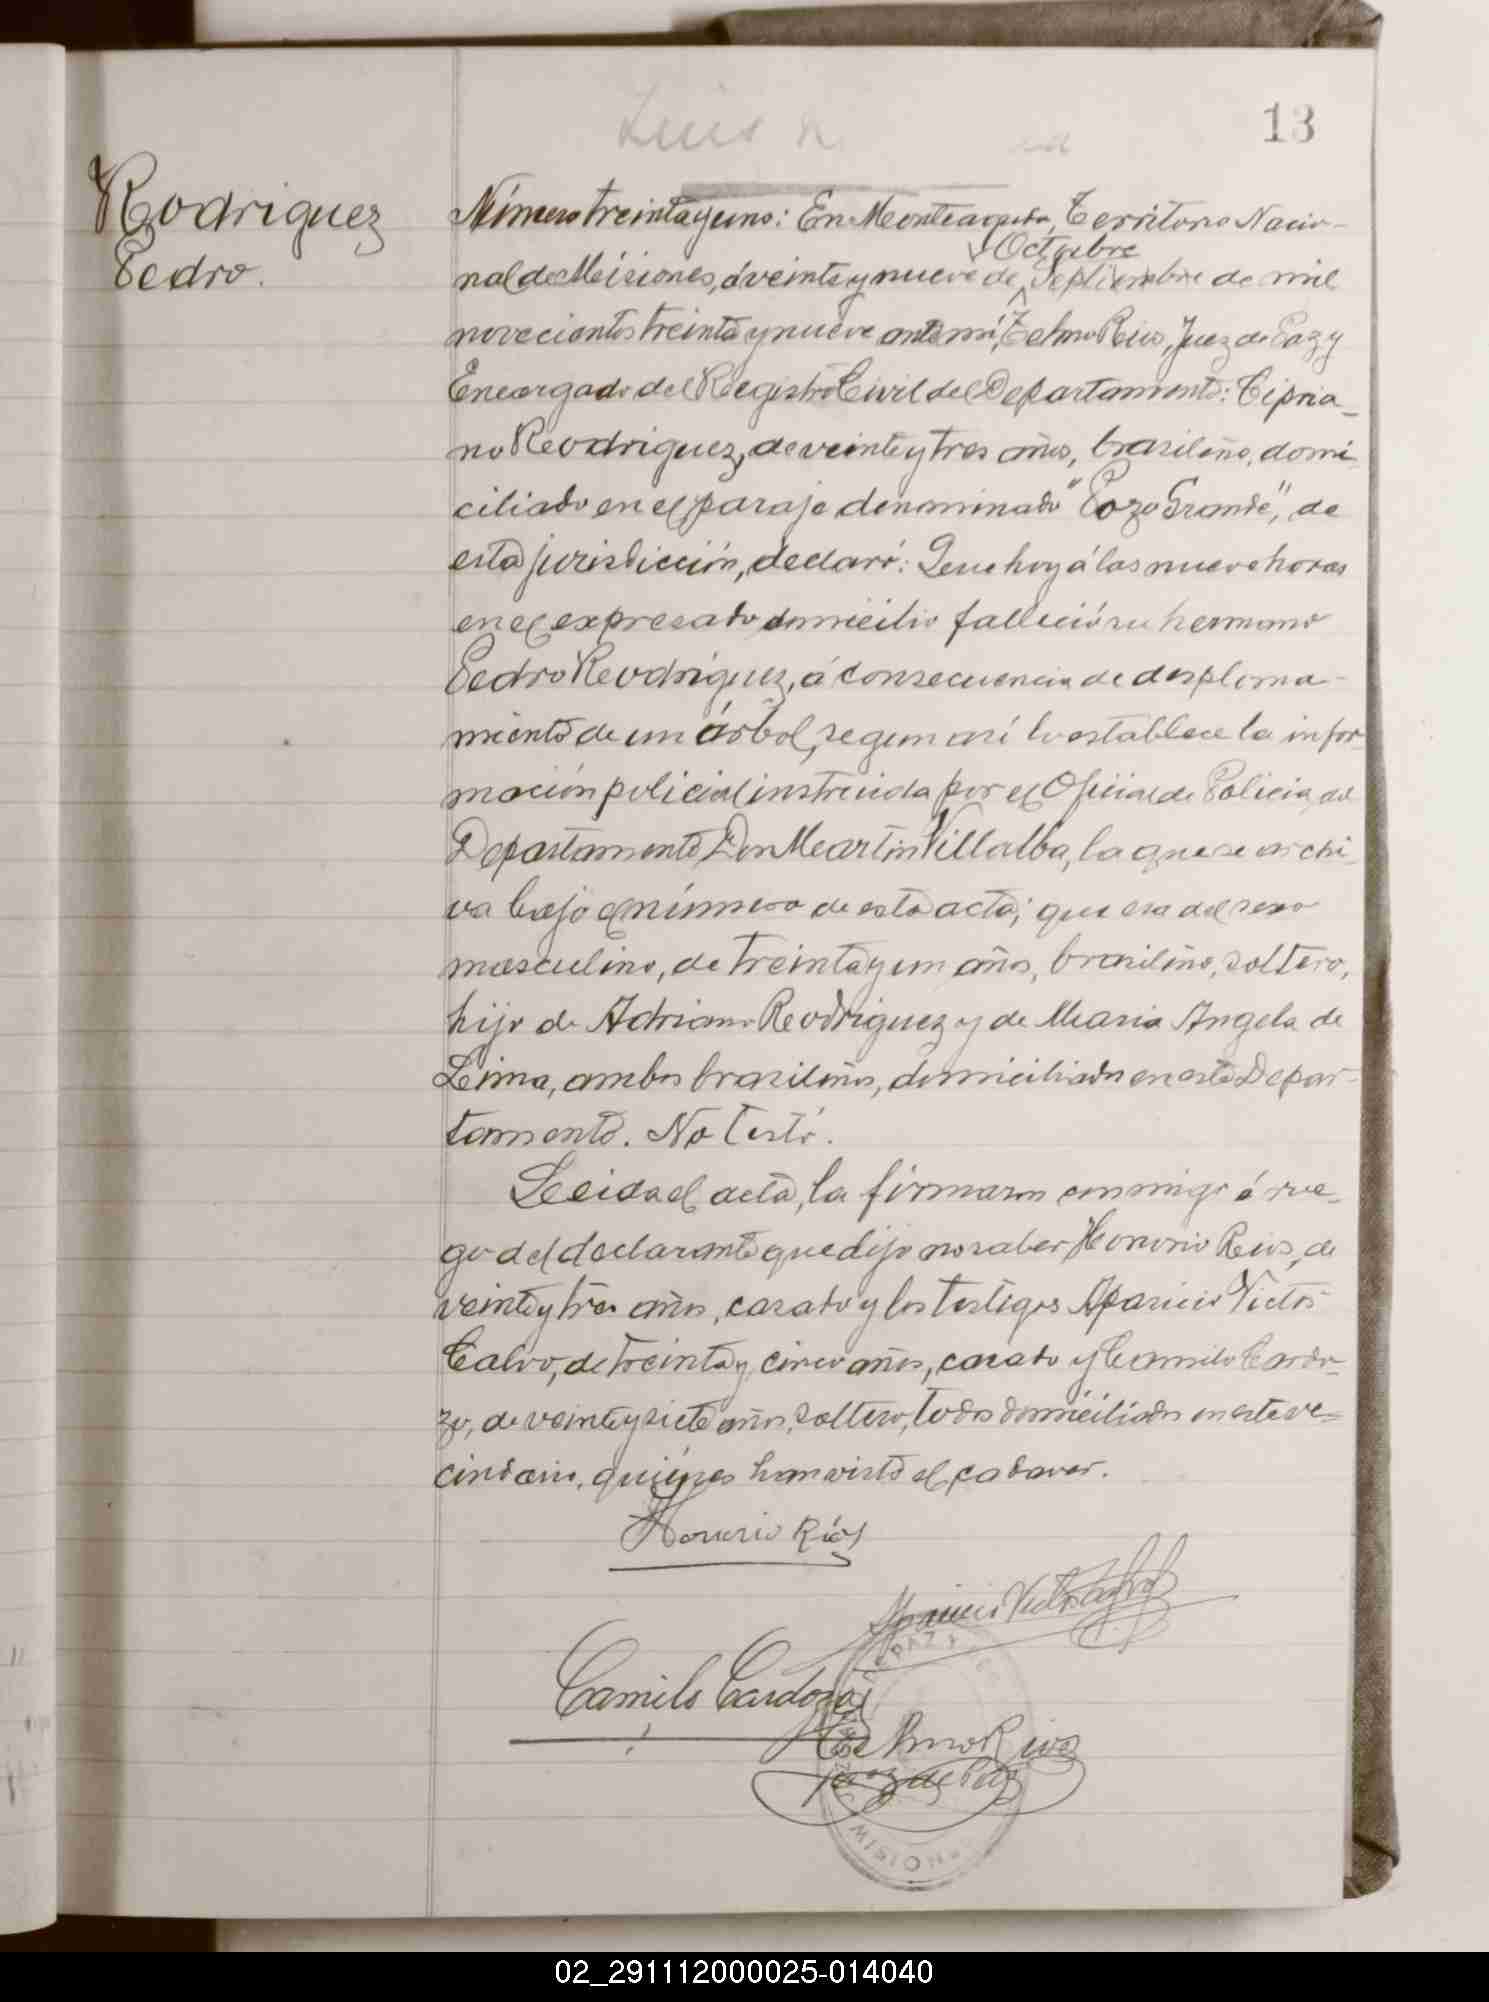 13
Rodriguez
Pedro.
Número treinta y uno: En Monteagudo, Territorio Nacio-
Octubre
nal de Misiones, á veinte y nueve de Septiembre de mil
novecientos treinta y nueve ante mí, Telmo Rios, Juez de Paz y
Encargado del Registro Civil del Departamento: Cipria-
no Rodriguez, de veinte y tres años, brasileño, domi-
ciliado en el paraje denominado "Pozo Grande", de
esta jurisdicción, declaró: Que hoy á las nueve horas
en el expresado domicilio falleció su hermano
Pedro Rodriguez, á consecuencia de desploma-
miento de un árbol, segun así lo establece la infor-
mación policial instruida por el Oficial de Policia del
Departamento Don Martin Villalba, la que se archi-
va bajo el número de esta acta; que era del sexo
masculino, de treinta y un años, brasileño, soltero,
hijo de Adriano Rodriguez y de Maria Angela de
Lima, ambos brasileños, domiciliados en este Depar-
tamento. No testó.
Leida el acta, la firmaron conmigo á rue-
go del declarante que dijo no saber Honorio Rios, de
veinte y tres años, casado y los testigos Aparicio Victor
Calvo, de treinta y cinco años, casado y Camilo Cardo-
zo, de veinte y siete años, soltero, todos domiciliados en este ve-
cindario, quiénes han visto el cadaver.
Honorio Ríos
Aparicio Victor Calvo
Camilo Cardozo
Telmo Rios
Juez de Paz
02_291112000025-014040